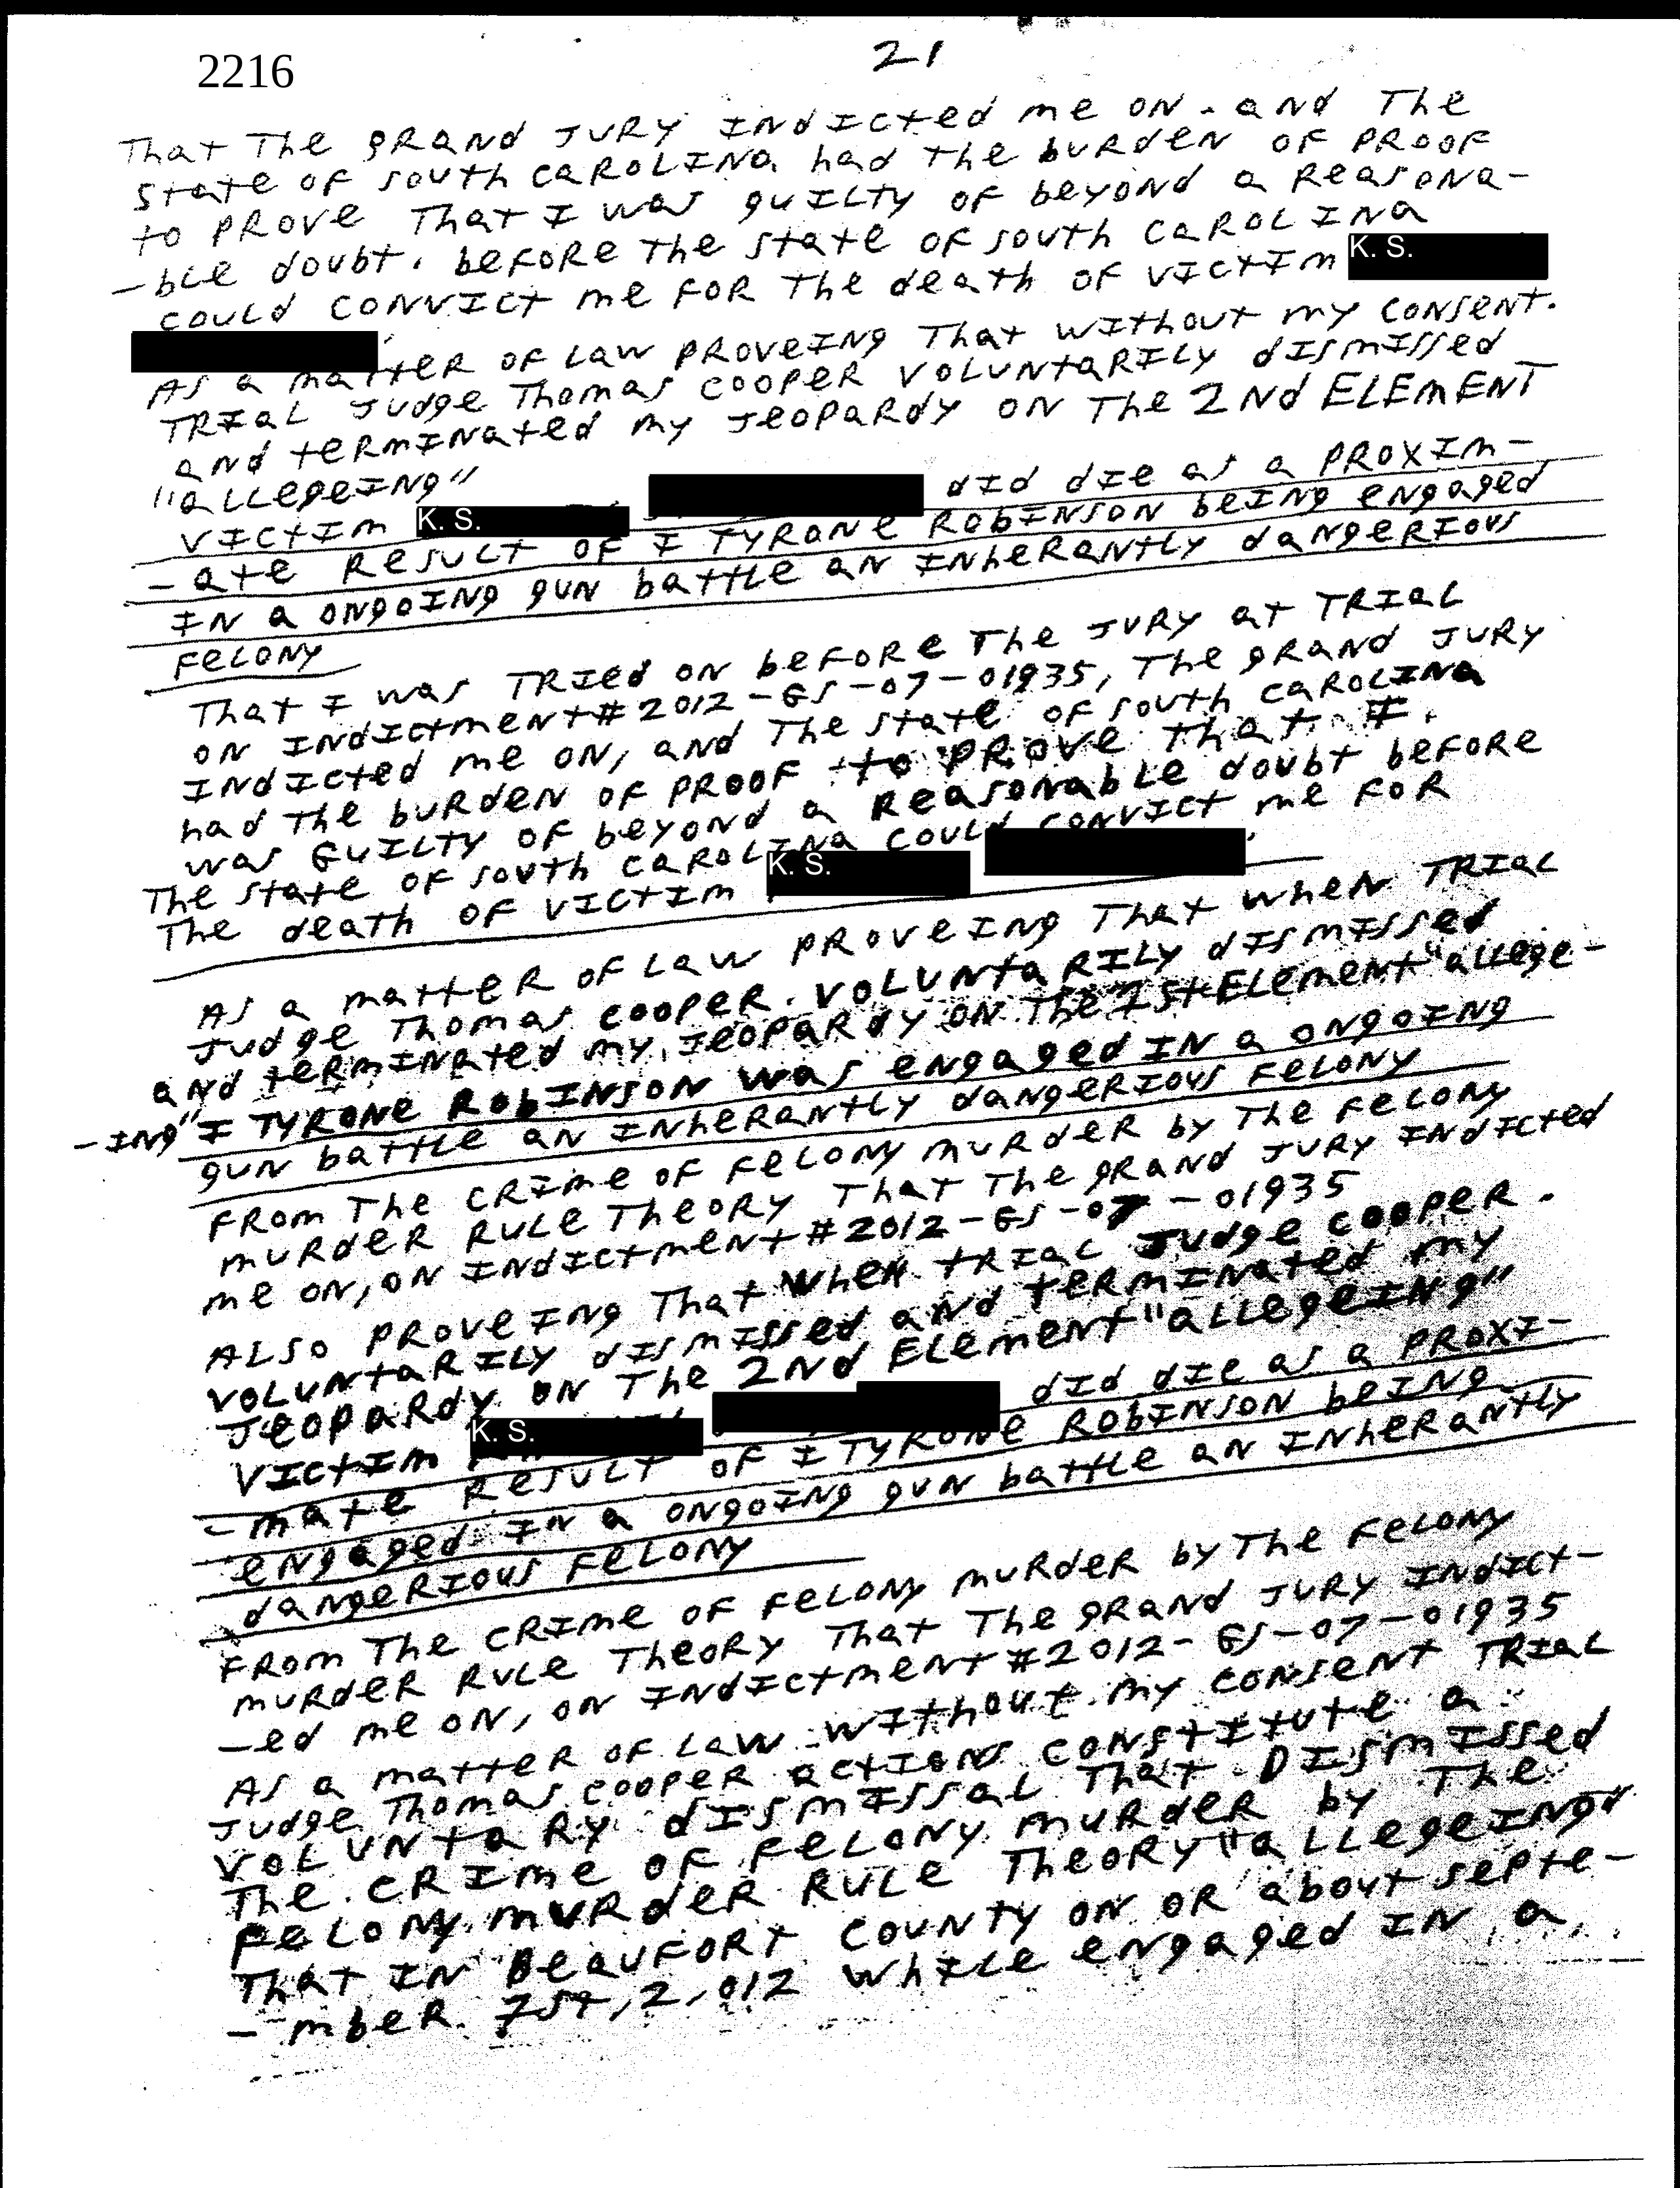 2216
21
That The gRAND JURY INdIcted me ON. and The
State OF South CAROLINa had the buRdeN OF PROOF
to PROVE That I was guILTY OF beyond a ReasoNa-
-bLe doubt. beFORe The State OF South CAROLINa
couLd CONVIct me FOR The death OF VIctIm K. S.
As a matteR OF Law PROVEING That without my CONSeNt.
TRIaL Judge Thomas COOPeR VOLUNtaRILy dIsmIssed
and teRmINated my JeOPaRdy ON The 2Nd ELEmENT
"aLLegeING"
VIctIm K. S. dId dIe as a PROXIm-
-ate ResuLt OF I TYRONe RObINSON beINg engaged
IN a ONgOINg guN battLe aN INheRaNtLy daNgeRIOus
FeLONy
That I was TRIed ON beFORe The JuRy at TRIaL
ON INdIctmeNt#2012-GS-07-01935, The gRaNd JuRy
INdIcted me ON, aNd The State OF South CaROLINa
had The buRdeN OF PROOF to PROVe That I.
was GuILTy OF beyONd a ReasONabLe doubt beFORe
The State OF South CaROLINa couLd cONVIct me FOR
The death OF VIctIm K. S.
As a matteR OF Law PROVEINg That wheN TRIaL
Judge Thomas COOPeR. VOLuNtaRILy dIsmIssed
aNd teRmINated my JeOPaRdy ON The 1st ELemeNt "aLLege-
-INg" I TyRONe RObINSON was eNgaged IN a ONgOINg
guN battLe aN INheRaNtLy daNgeRIOus FeLONy
FROm The CRIme OF FeLONy muRdeR by The FeLONy
muRdeR RuLe TheORy That The gRaNd JuRy INdIcted
me ON, ON INdIctmeNt#2012-GS-07-01935
ALsO PROVEINg That wheN tRIaL Judge COOPeR.
VOLuNtaRILy dIsmIssed aNd teRmINated my
JeOPaRdy ON The 2Nd ELemeNt "aLLegeINg"
VIctIm K. S. dId dIe as a PROXI-
-mate ResuLt OF I TyRONe RObINSON beINg
eNgaged IN a ONgOINg guN battLe aN INheRaNtLy
daNgeRIOus FeLONy
FROm The CRIme OF FeLONy muRdeR by The FeLONy
muRdeR RuLe TheORy That The gRaNd JuRy INdIct-
-ed me ON, ON INdIctmeNt#2012-GS-07-01935
As a matteR OF Law wIthout my cONseNt TRIaL
Judge Thomas COOPeR actIONs cONstItute a
VOLuNtaRy dIsmIssaL That DIsmIssed
The CRIme OF FeLONy muRdeR by The
FeLONy muRdeR RuLe TheORy "aLLegeINg"
That IN BeauFORt COuNty ON OR about septe-
-mbeR 1st, 2,012 whILe eNgaged IN a,